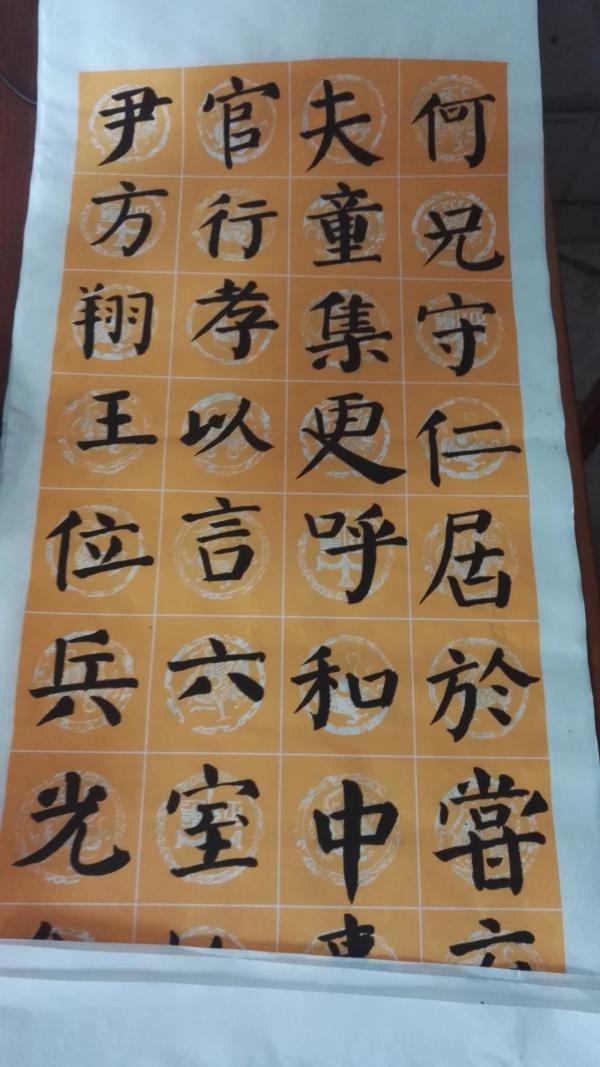 何兄守仁居於嘗
夫童集更呼和中
官行孝以言六室
尹方翔王位兵光